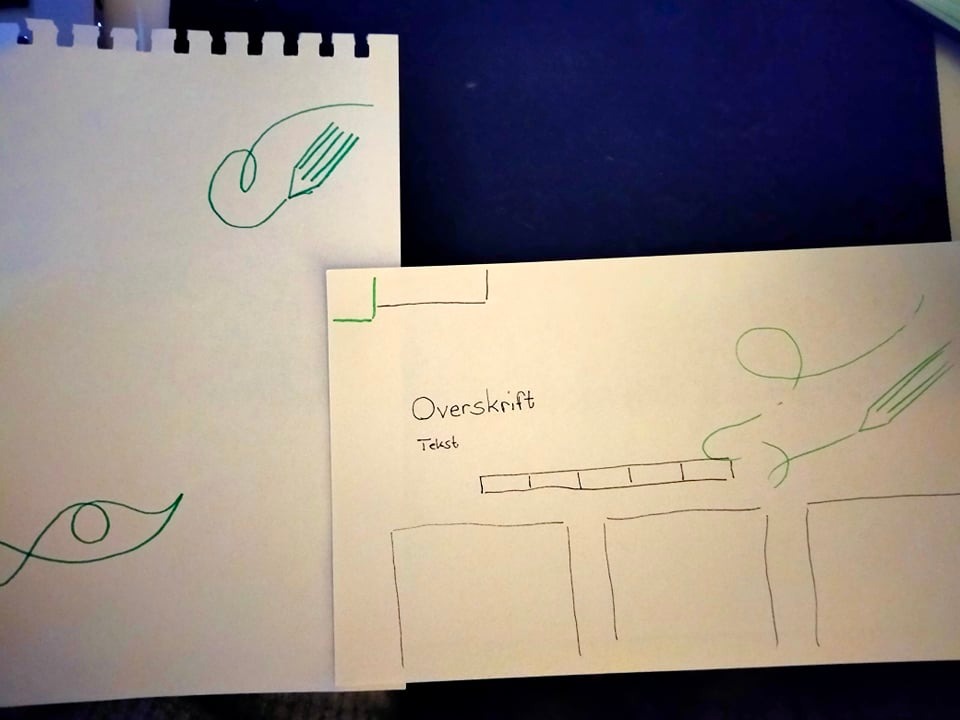 Overskrift
Tekst